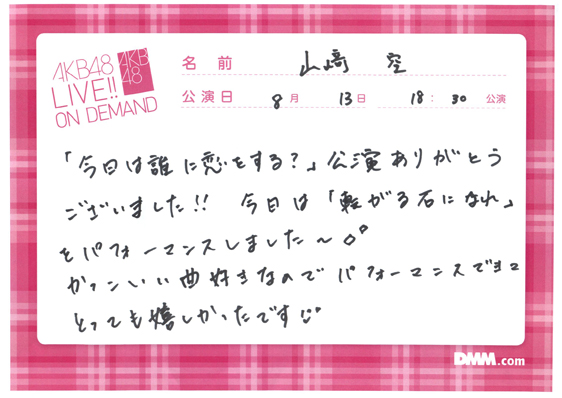 AKB48
LIVE!!
ON DEMAND
AKB
48
名前 山﨑 空
公演日 8月 13日 18:30 公演
「今日は誰に恋をする?」公演ありがとう
ございました!! 今日は「転がる石になれ」
をパフォーマンスしました〜
かっこいい曲好きなのでパフォーマンスできて
とっても嬉しかったです
DMM.com